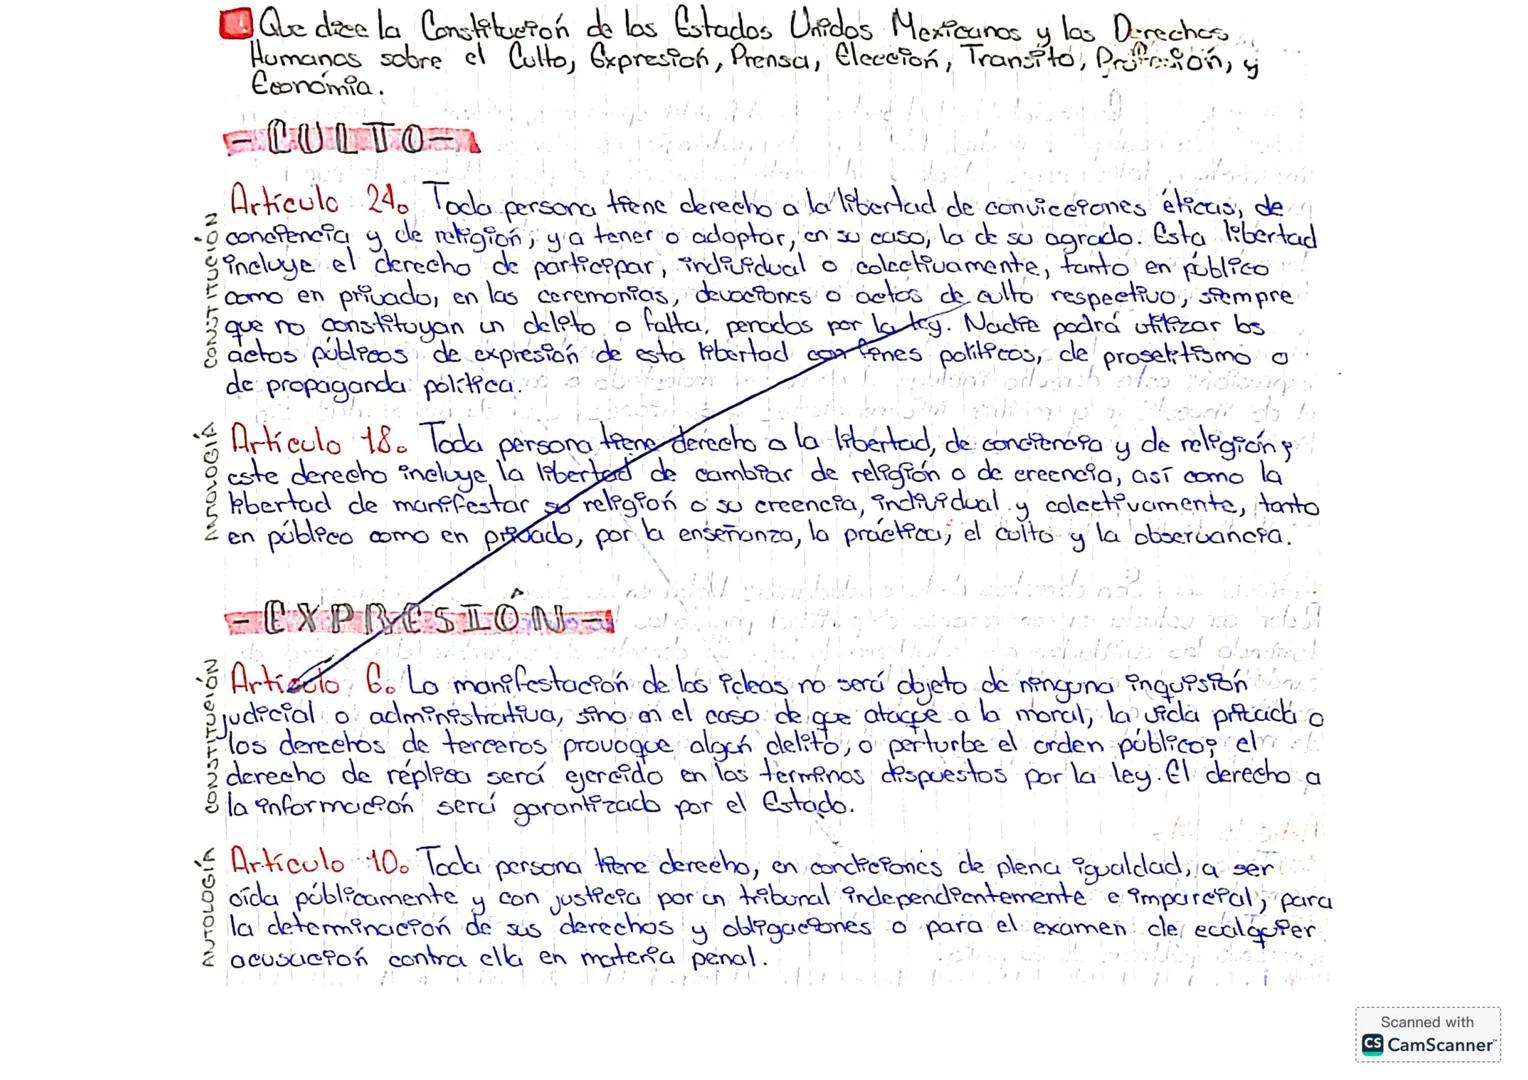 Que dice la Constitución de los Estados Unidos Mexicanos y los Derechos
Humanos sobre el Culto, Expresión, Prensa, Elección, Transito, Profesión, y
Economía.
-CULTO-
CONSTITUCIÓN
Artículo 24. Toda persona tiene derecho a la libertad de convicciones éticas, de
conciencia y de religión, y a tener o adoptar, en su caso, la de su agrado. Esta libertad
incluye el derecho de participar, individual o colectivamente, tanto en público
como en privado, en las ceremonias, devociones o actos de culto respectivo, siempre
que no constituyan un delito o falta, penados por la ley. Nadie podrá utilizar los
actos públicos de expresión de esta libertad con fines políticos, de proselitismo o
de propaganda política.
ANTOLOGÍA
Artículo 18. Toda persona tiene derecho a la libertad, de conciencia y de religión;
este derecho incluye la libertad de cambiar de religión o de creencia, así como la
libertad de manifestar su religión o su creencia, individual y colectivamente, tanto
en público como en privado, por la enseñanza, la práctica, el culto y la observancia.
-EXPRESIÓN-
CONSTITUCIÓN
Artículo 6. La manifestación de las ideas no será objeto de ninguna inquisión
judicial o administrativa, sino en el caso de que ataque a la moral, la vida privada o
los derechos de terceros provoque algún delito, o perturbe el orden público; el
derecho de réplica será ejercido en los terminos dispuestos por la ley. El derecho a
la información será garantizado por el Estado.
AUTOLOGÍA
Artículo 10. Toda persona tiene derecho, en condiciones de plena igualdad, a ser
oída públicamente y con justicia por un tribunal independientemente e imparcial, para
la determinación de sus derechos y obligaciones o para el examen de cualquier
acusación contra ella en materia penal.
Scanned with
CS CamScanner